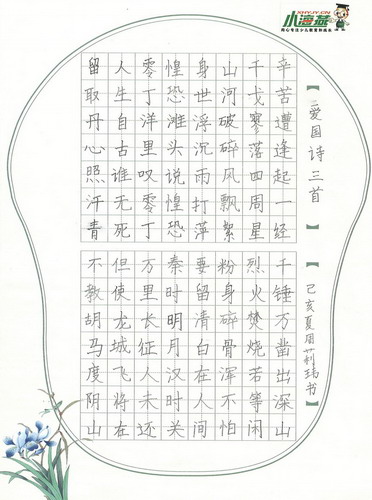 小海燕
XHYJY.CN
【爱国诗三首】
辛苦遭逢起一经
干戈寥落四周星
山河破碎风飘絮
身世浮沉雨打萍
惶恐滩头说惶恐
零丁洋里叹零丁
人生自古谁无死
留取丹心照汗青
【己亥夏周莉玮书
千锤万凿出深山
烈火焚烧若等闲
粉身碎骨浑不怕
要留清白在人间
秦时明月汉时关
万里长征人未还
但使龙城飞将在
不教胡马度阴山